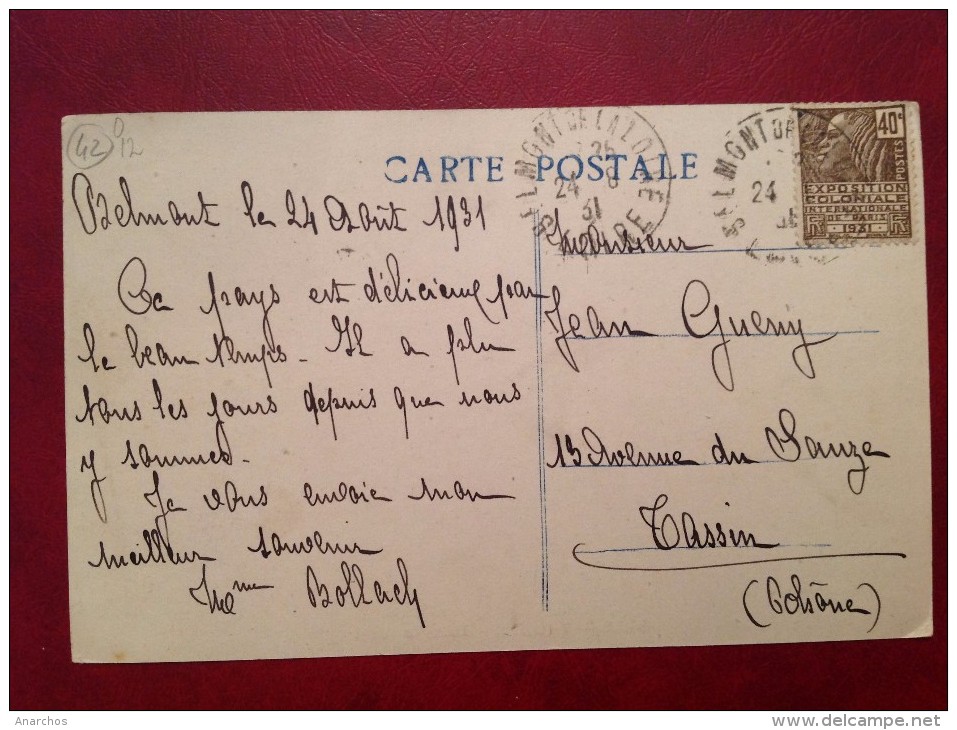 42
12
CARTE POSTALE
BELMONT DE LA LOIRE
24 8
31
LOIRE
BELMONT DE
24
40c
POSTES
EXPOSITION
COLONIALE
INTERNATIONALE
DE PARIS
1931
Belmont le 24 Août 1931
Ce pays est délicieux par
le beau temps. Il a plu
tous les jours depuis que nous
y sommes.
Je vous envoie mon
meilleur souvenir
Mme Bollach
Monsieur
Jean Gueny
13 Avenue du Sauze
Tassin
(Rhône)
Anarchos
www.delcampe.net